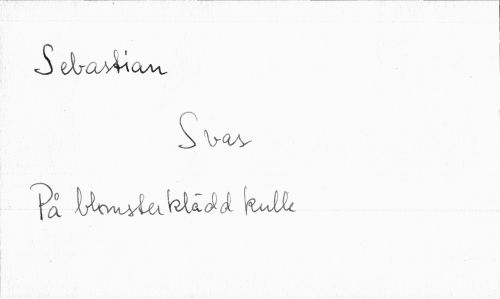 Sebastian
Svas
På blomsterklädd kulle